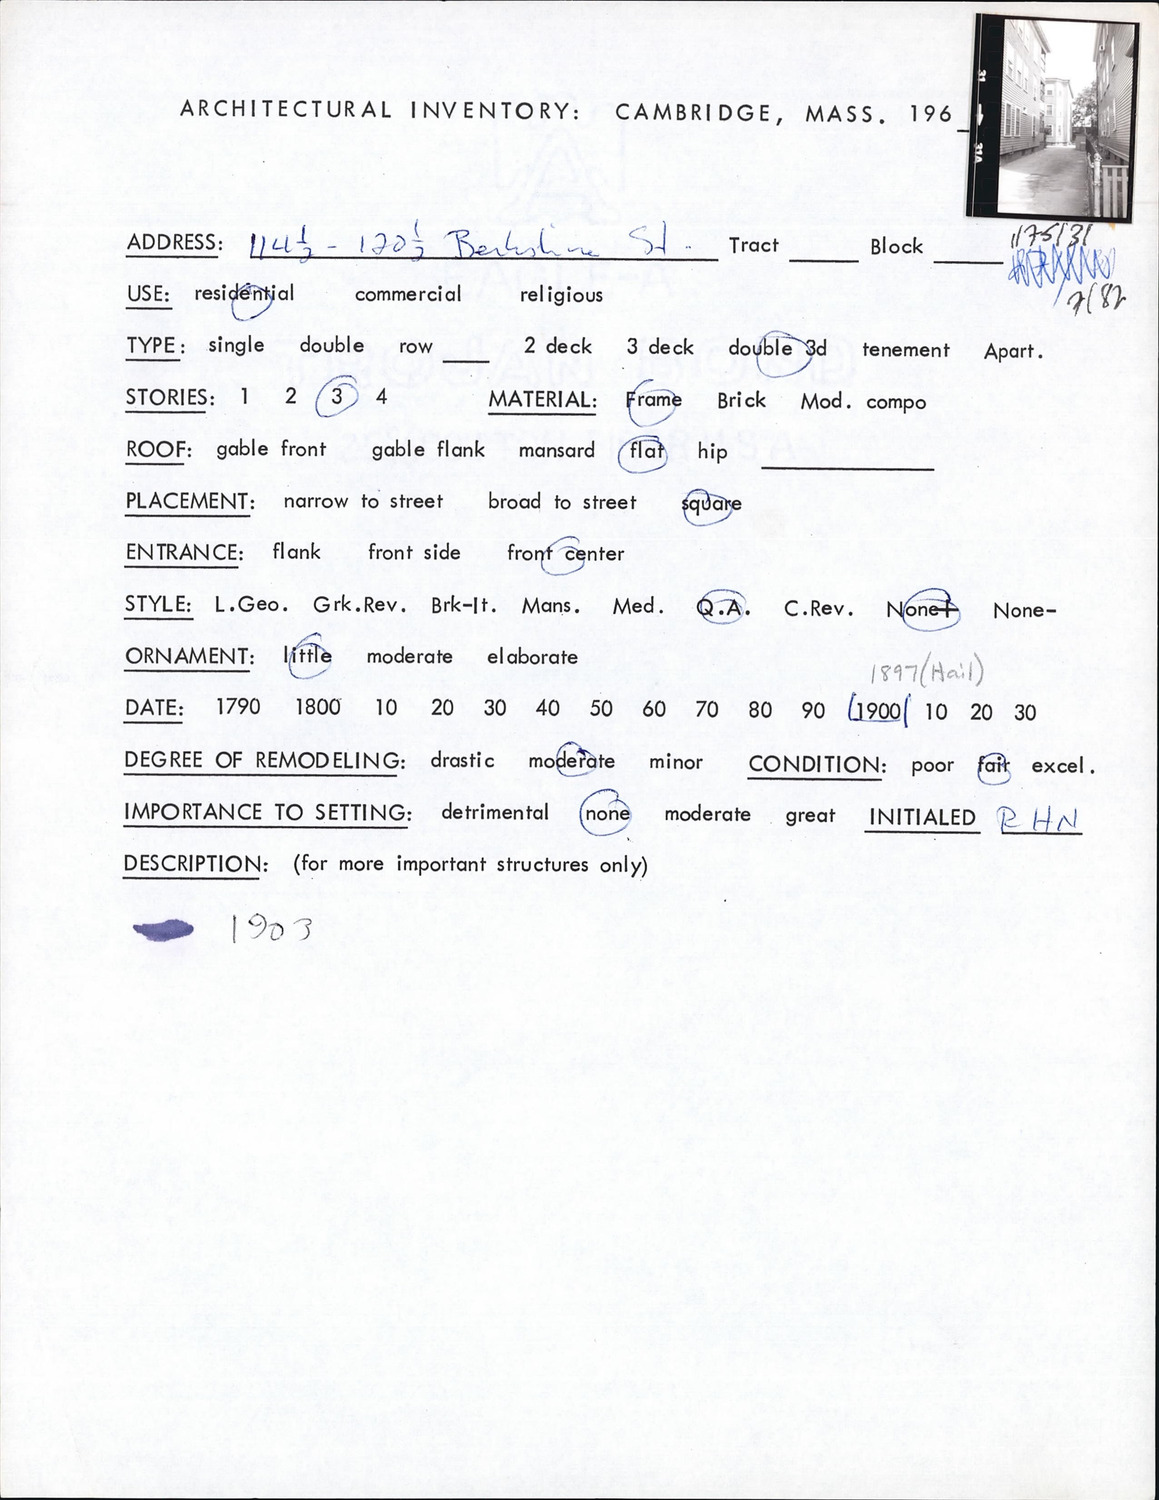 31
31A
ARCHITECTURAL INVENTORY: CAMBRIDGE, MASS. 196_
ADDRESS: 114½ - 120½ Berkshire St. Tract ____ Block ____
1/75/31
7/82
USE: residential commercial religious
TYPE: single double row ___ 2 deck 3 deck double 3d tenement Apart.
STORIES: 1 2 3 4 MATERIAL: Frame Brick Mod. compo
ROOF: gable front gable flank mansard flat hip ________
PLACEMENT: narrow to street broad to street square
ENTRANCE: flank front side front center
STYLE: L.Geo. Grk.Rev. Brk-It. Mans. Med. Q.A. C.Rev. None+ None-
ORNAMENT: little moderate elaborate
1897 (Hail)
DATE: 1790 1800 10 20 30 40 50 60 70 80 90 1900 10 20 30
DEGREE OF REMODELING: drastic moderate minor CONDITION: poor fair excel.
IMPORTANCE TO SETTING: detrimental none moderate great INITIALED RHN
DESCRIPTION: (for more important structures only)
1903